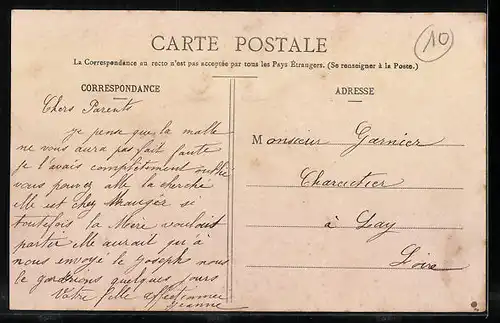 CARTE POSTALE
10
La Correspondance au recto n'est pas acceptée par tous les Pays Étrangers. (Se renseigner à la Poste.)
CORRESPONDANCE
ADRESSE
Chers Parents
je pense que la malle
ne vous aura pas fait faute
je l'avais complètement oublié
vous pouvez alle la cherché
elle est chez si
toutefois la Mère voulait
partir elle aurait qu'à
nous envoyé le Joseph nous
le garderions quelques jours
Votre fille affectionnée
Jeanne
Monsieur Garnier
Charcutier
à Lay
Loire